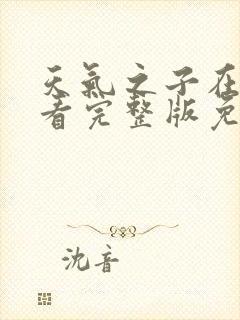 天氣之子在
看完整版免
沈音